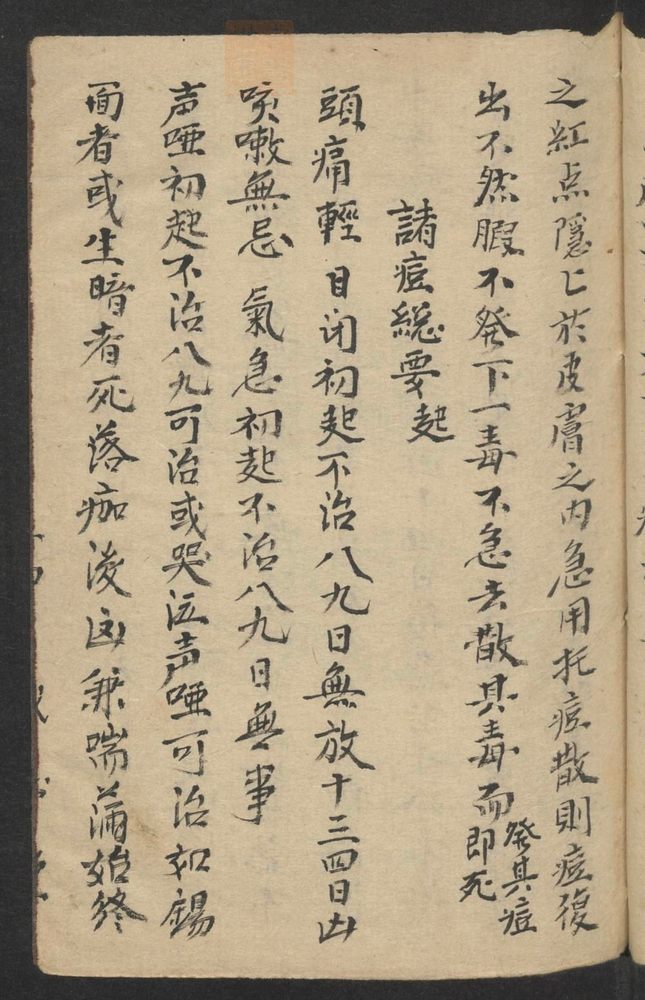 之紅点隱匕於皮膚之内急用托痘散則痘復
出不然腸不發下一毒不急去散其毒而即死
發其痘
諸痘總要起
頭痛輕 目闭初起不治八九日無放十三四日凶
咳嗽無忌 氣急初起不治八九日無事
声哑初起不治八九可治或哭泣声哑可治如錫
面者或生暗者死落痂後凶兼喘 始終